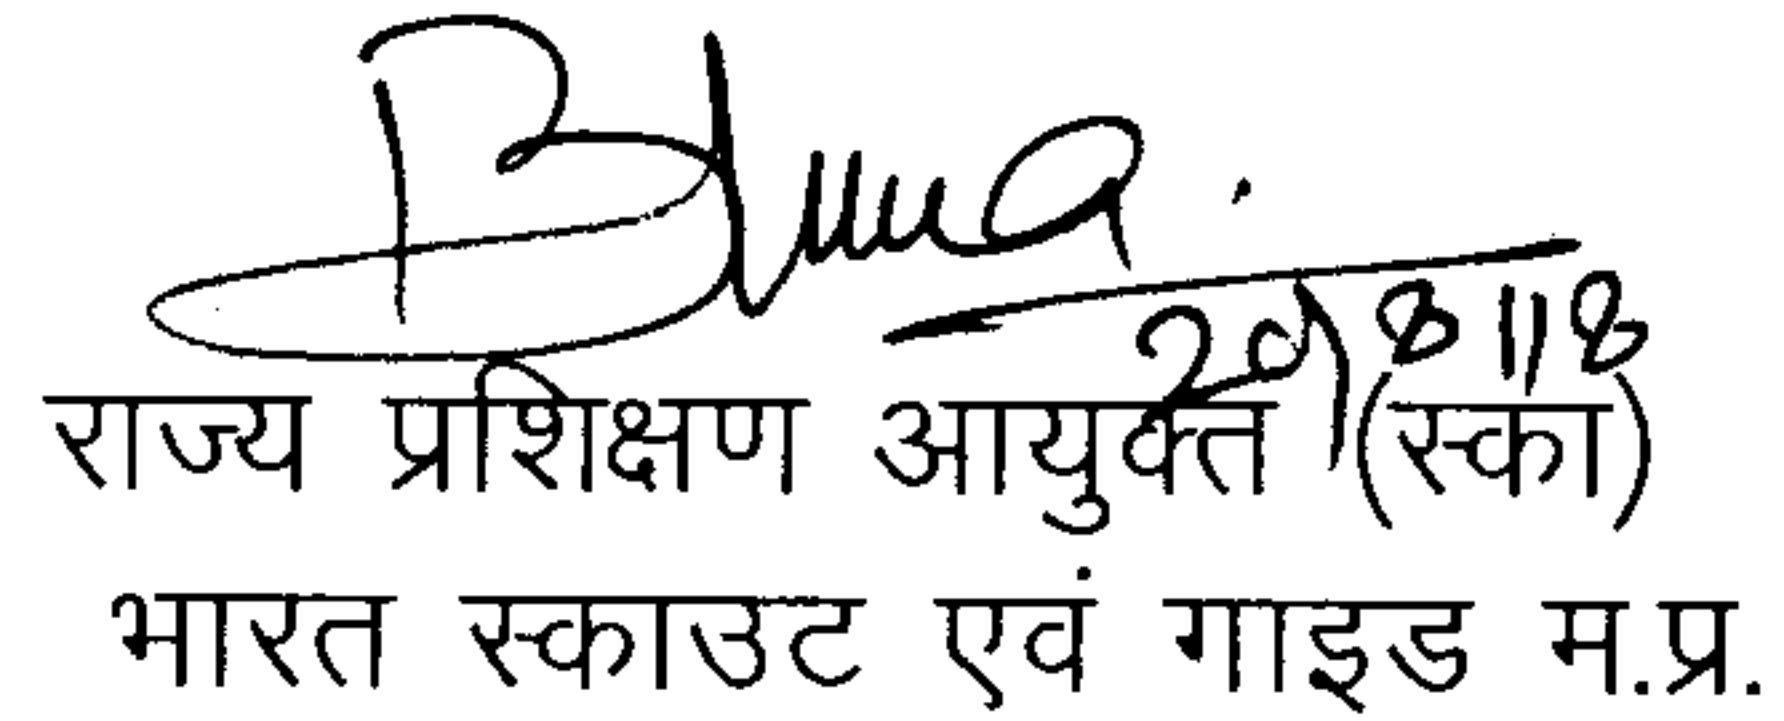 29/8/18
राज्य प्रशिक्षण आयुक्त (स्का)
भारत स्काउट एवं गाइड म.प्र.